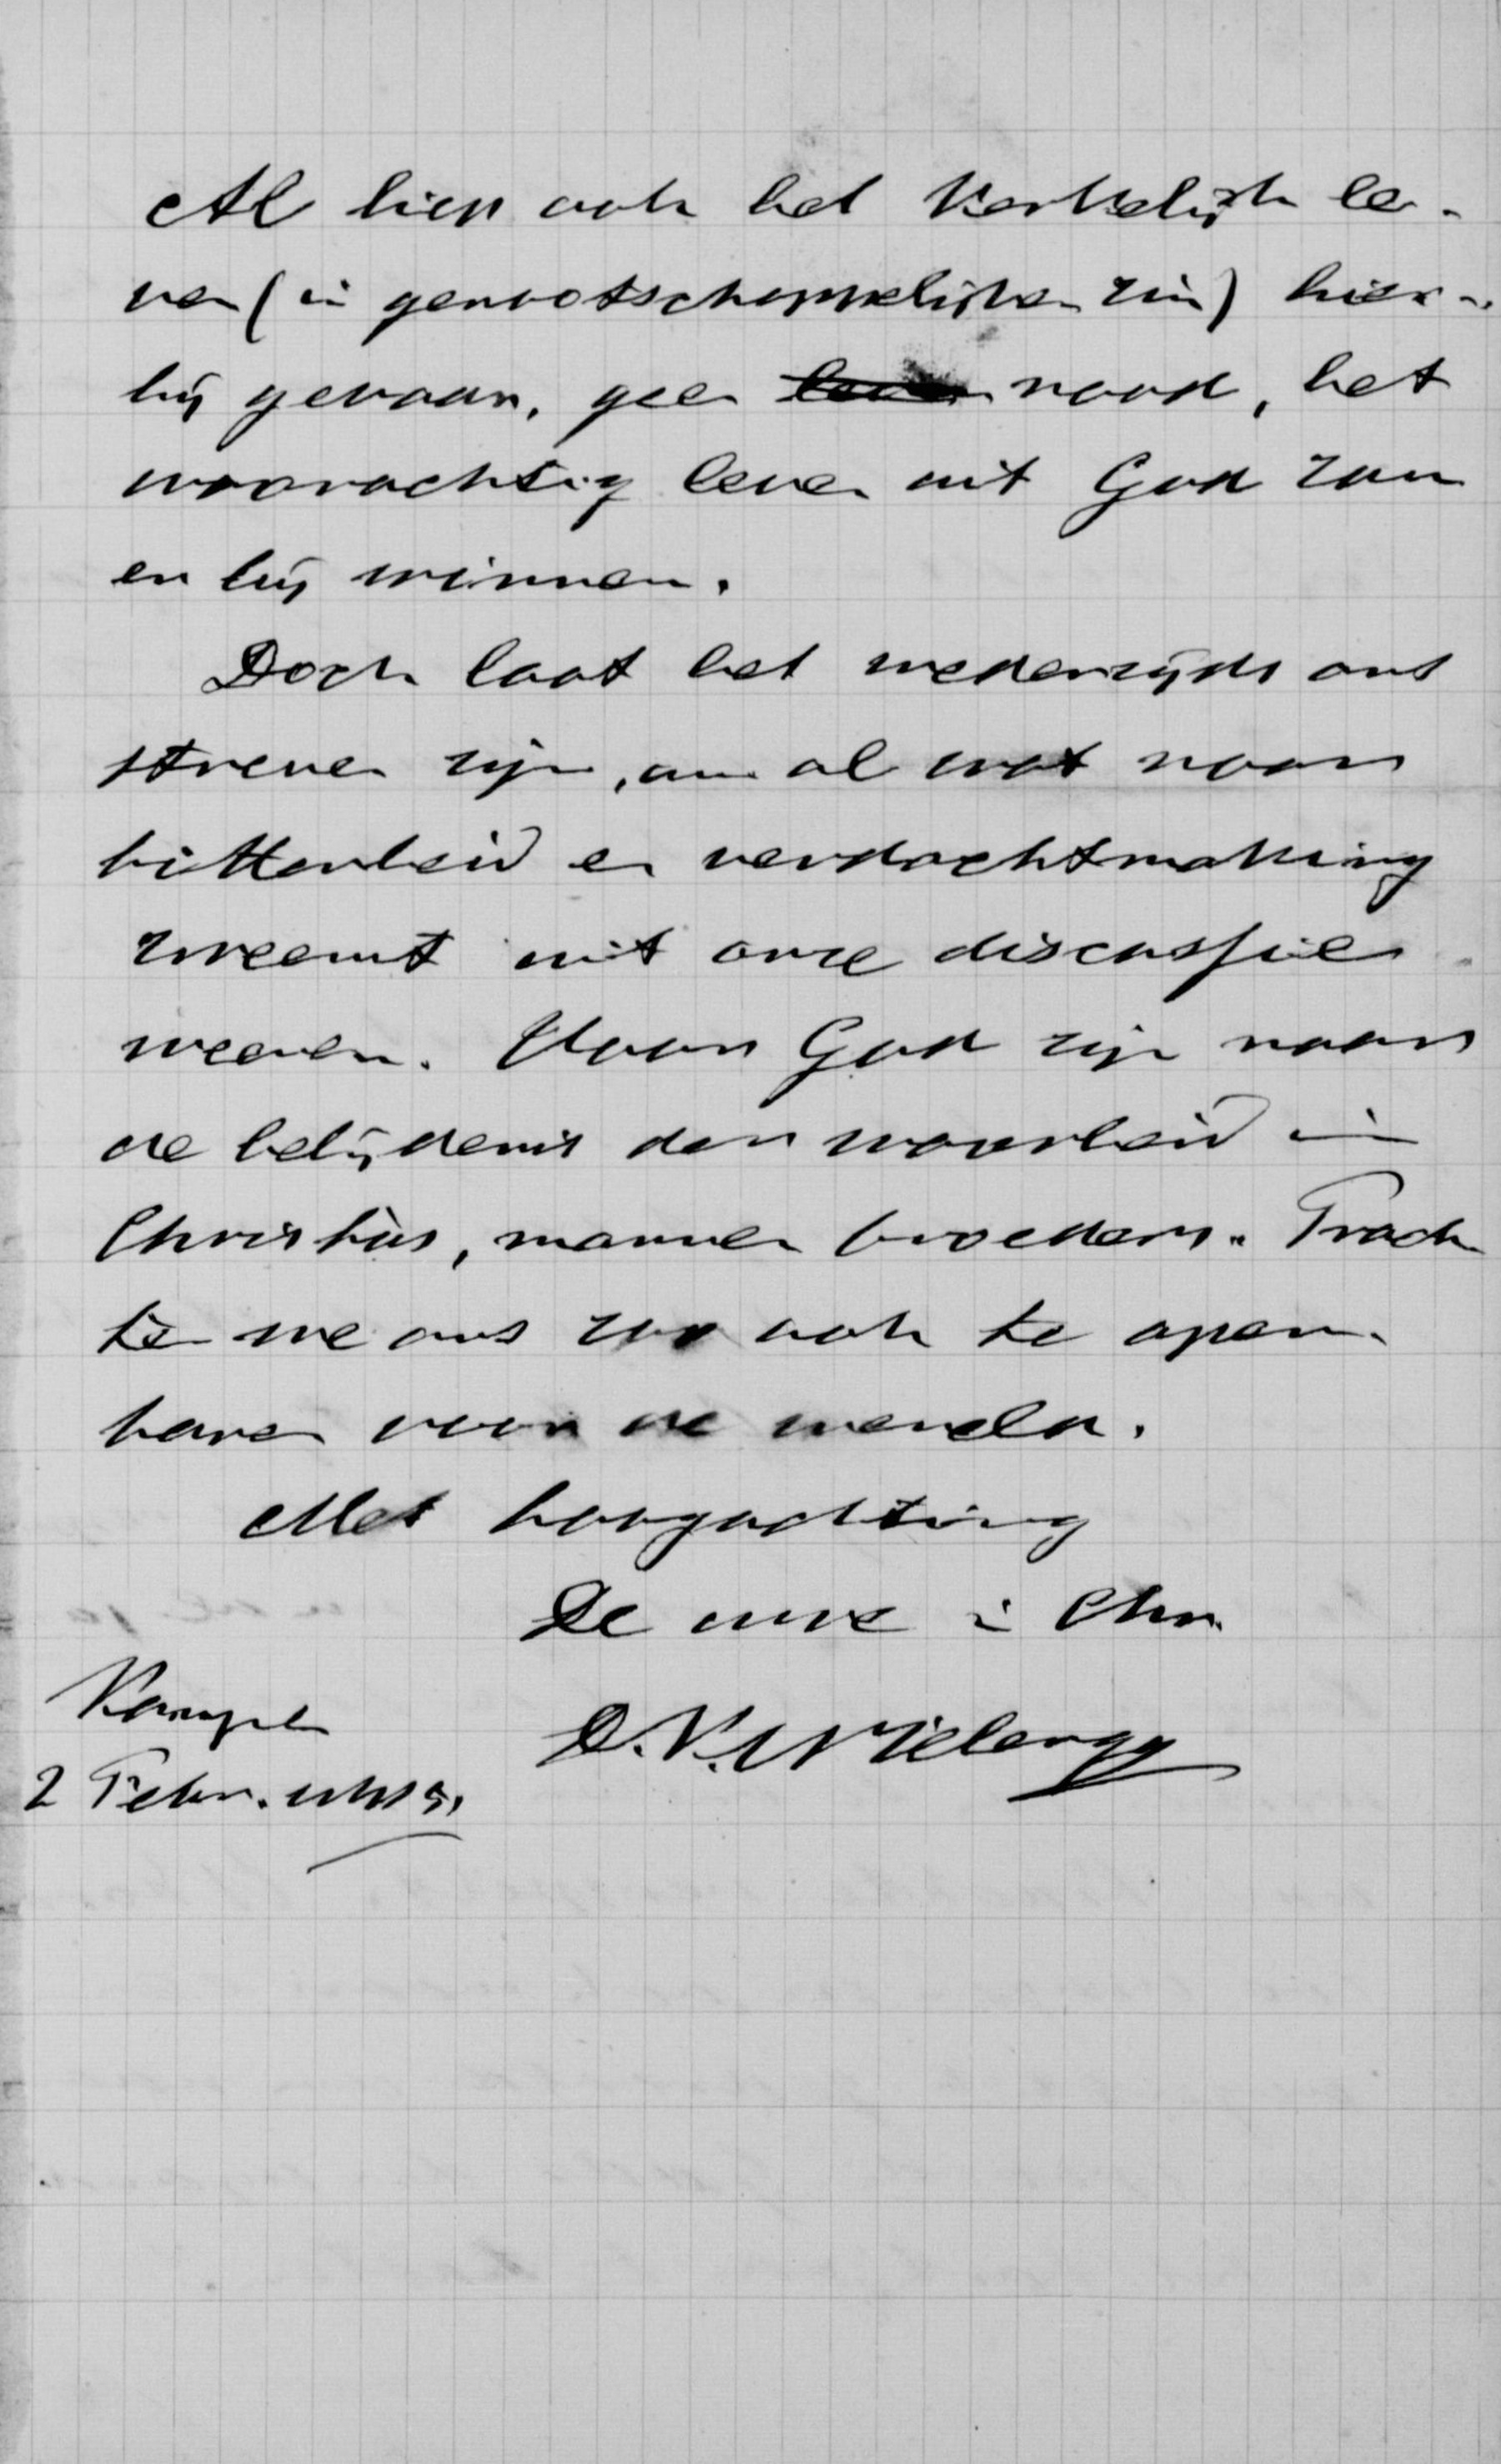 Al liep ook het Kerkelijk le-
ven (in genootschappelijken zin) hier-
bij gevaar, geen nood, het
waarachtig leven uit God zou
er bij winnen.
Doch laat het wederzijds ons
streven zijn, om al wat naar
bitterheid en verdachtmaking
zweemt uit onze discussie
weeren. Voor God zijn naar
de belijdenis der waarheid in
Christus, mannen broeders. Trach
ten we ons zoo ook te open-
baren voor de wereld.
Met hoogachting
De uwe in Chr.
D. K. Wielenga
Kampen
2 Febr.